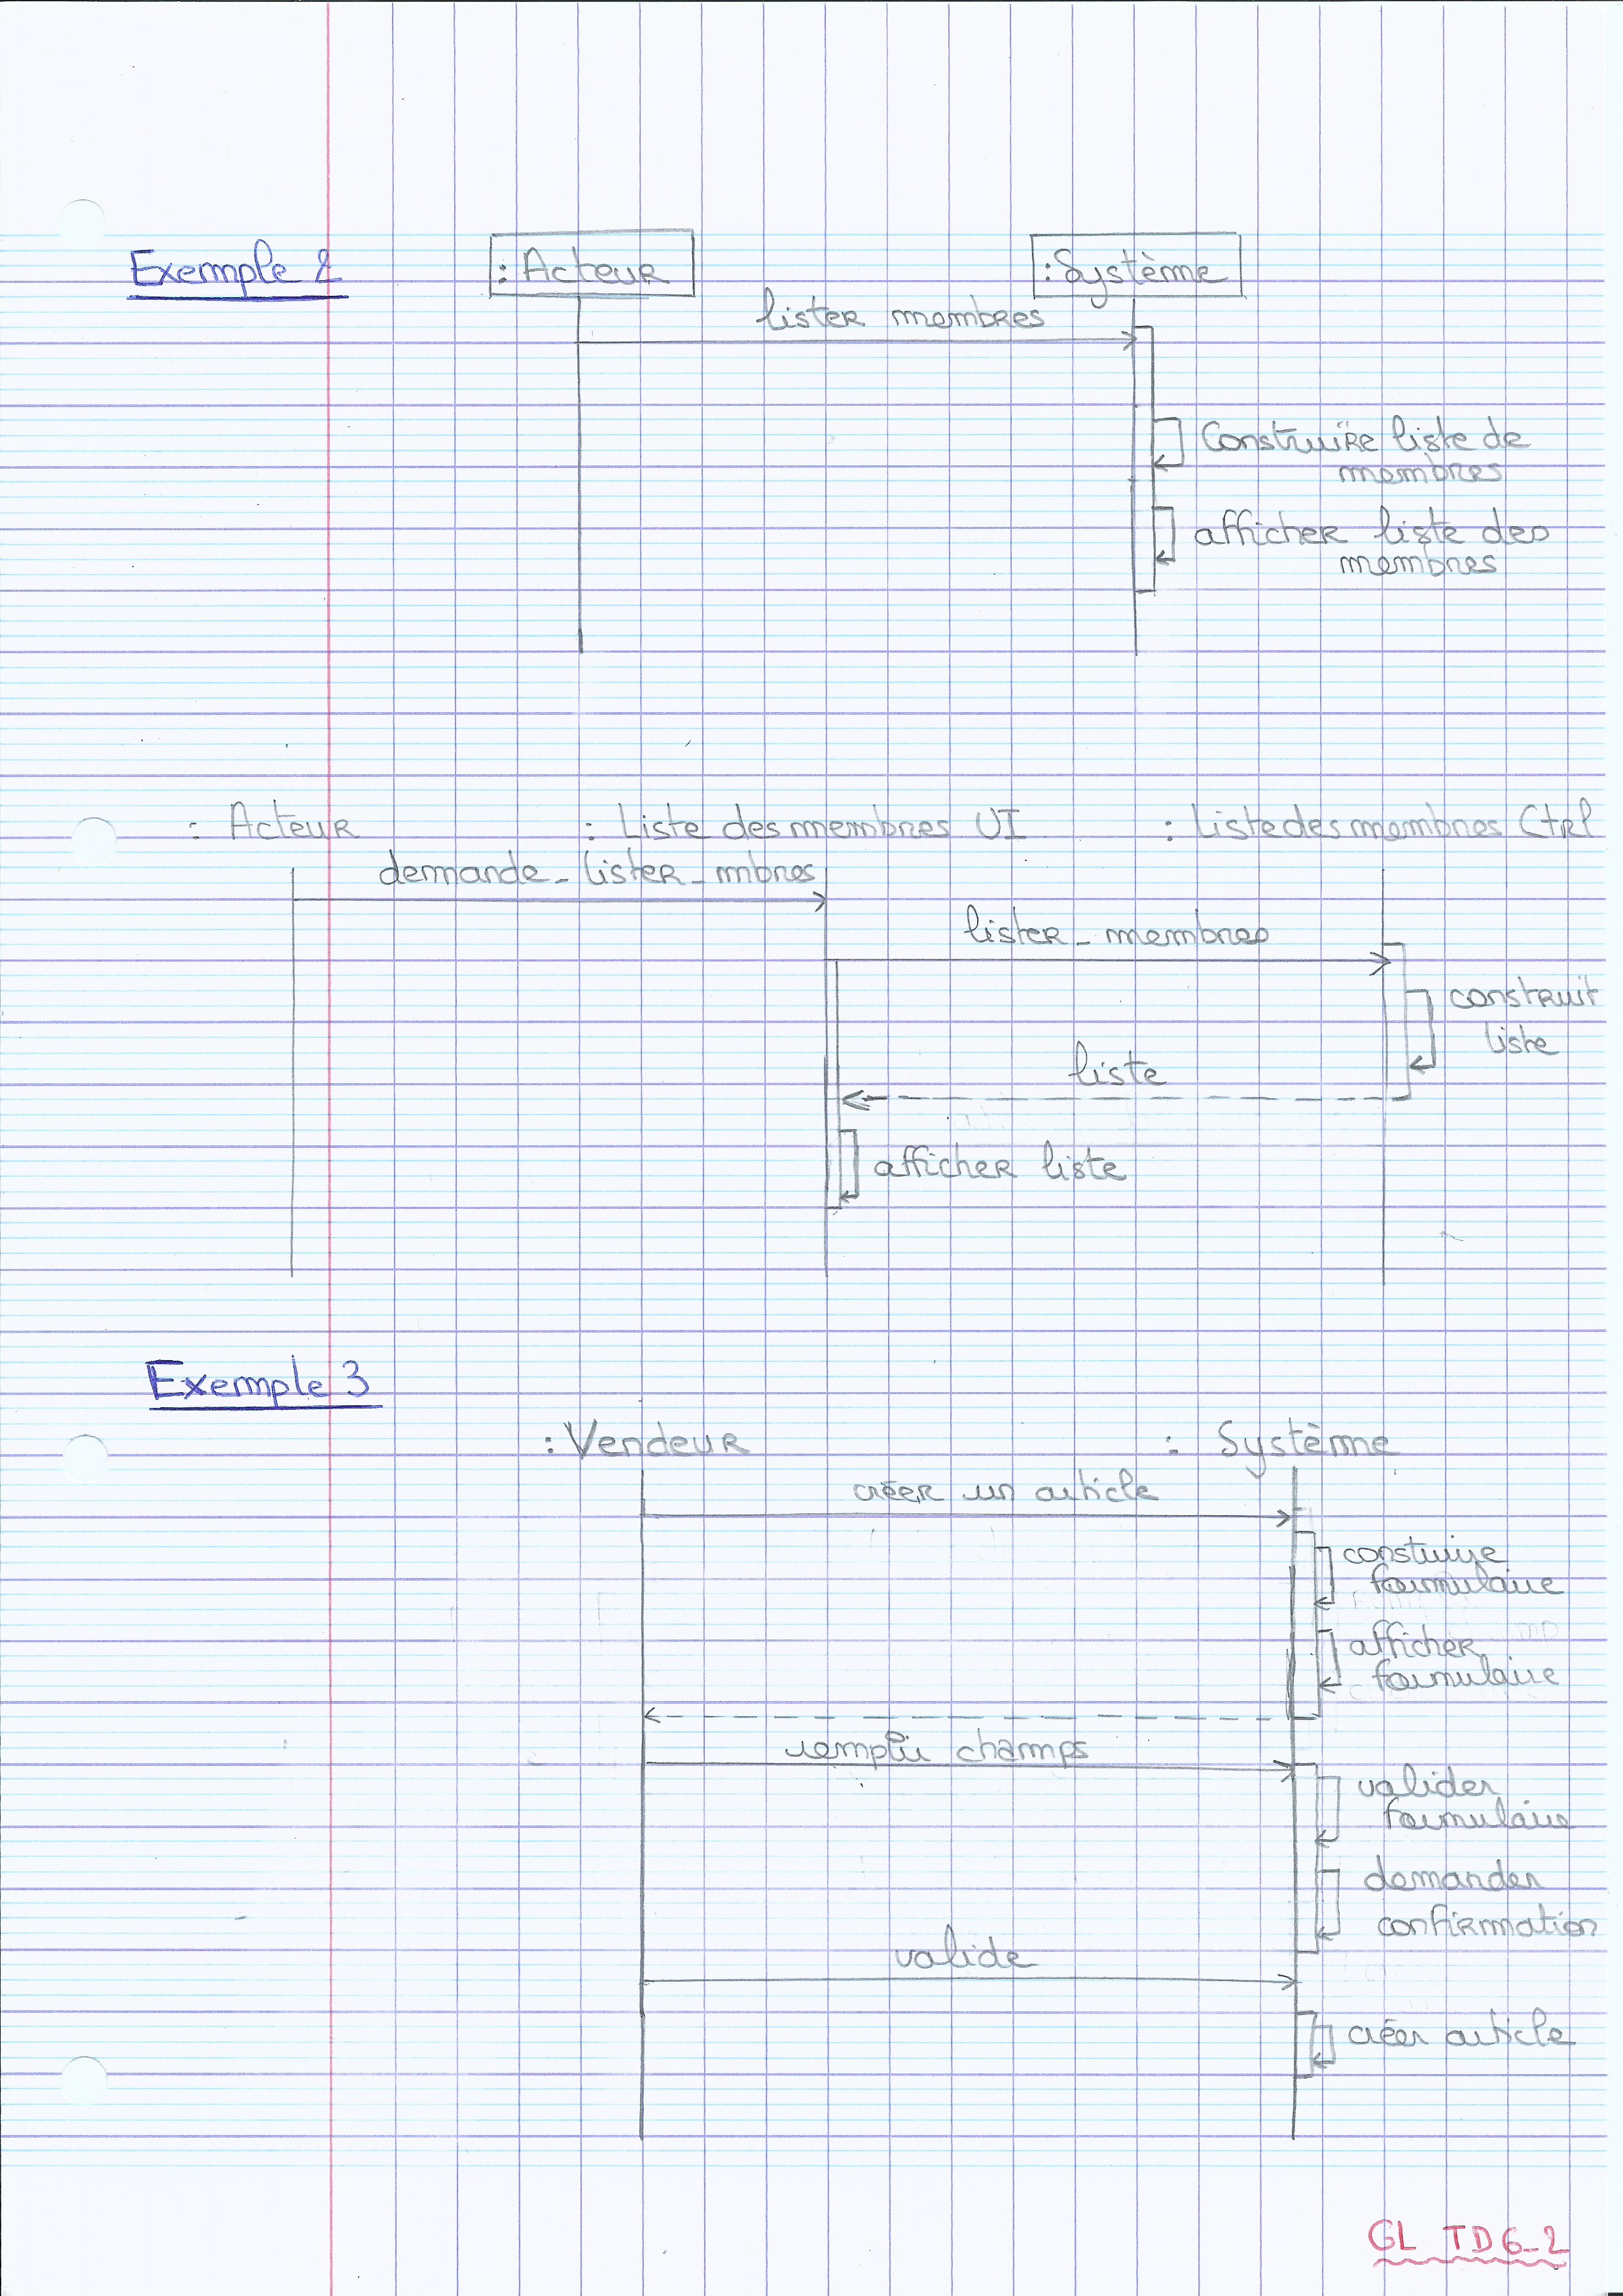 Exemple 2
: Acteur
: Système
lister membres
Construire liste de
membres
afficher liste des
membres
: Acteur
: Liste des membres UI
: Liste des membres Ctrl
demande_lister_mbres
lister_membres
construit
liste
liste
afficher liste
Exemple 3
: Vendeur
: Système
créer un article
construire
formulaire
afficher
formulaire
remplir champs
valider
formulaire
demander
confirmation
valide
créer article
GL TD6_2